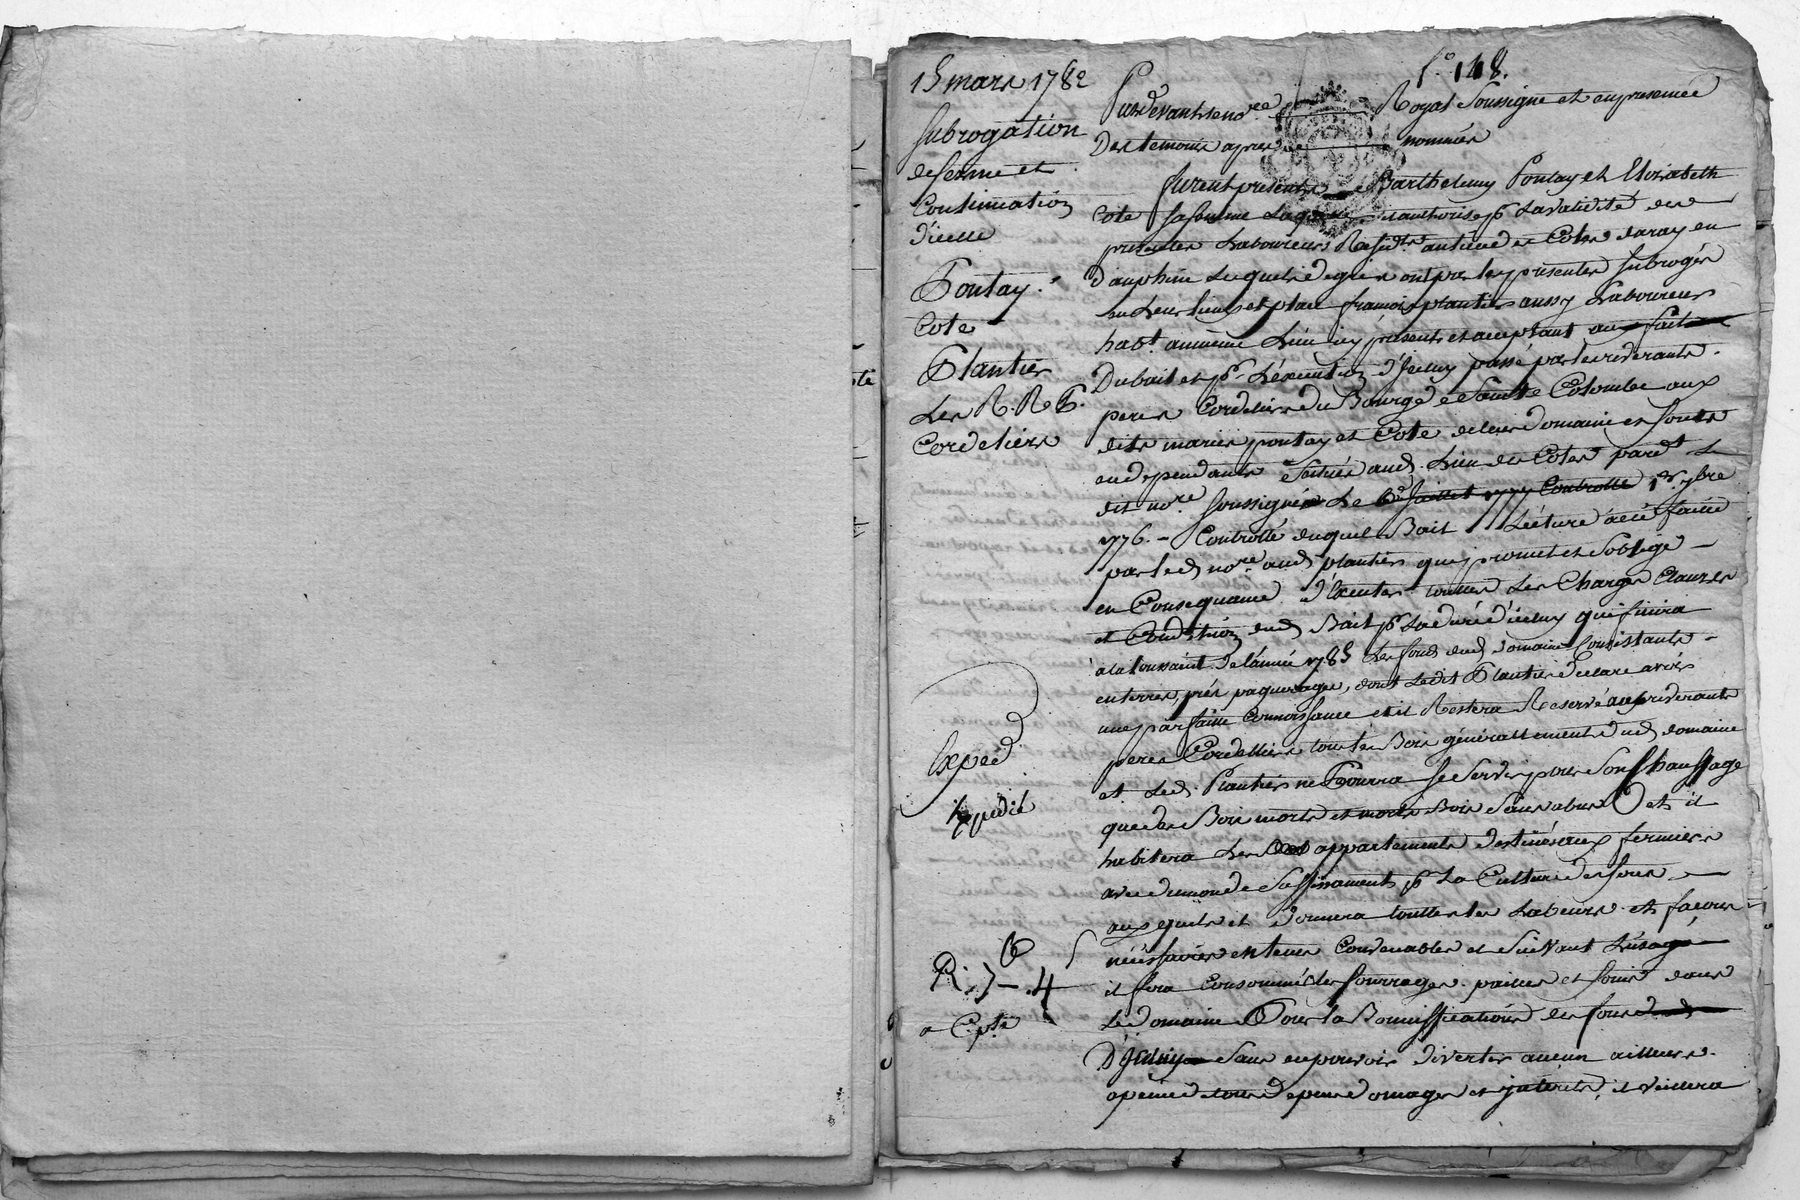 f.º 148.
15 mars 1782
Subrogation
de ferme et
Continuation
d'icelle
Pontay.
Cote
Plantier
Les R. R. P.
Cordeliers
Exped
Expedié
R. 7 - 4
a Cpte
Pardevant le no.re Royal soussigné et en presence
Des temoins apres nommés
furent presents Barthelemy Pontay et Elizabeth
Cote sa femme Laquelle il authorise pr La validité des
presentes Laboureurs Resid.ts au lieu de Cotes darey en
Dauphiné Lesquels de gré ont par les presentes subrogés
en Leur lieu et place françois plantier aussy Laboureur
hab.t au même Lieu icy présent et acceptant
Du bail et pr L'éxécution d'iceluy passé par les reverants
peres Cordeliers du Bourg de Sainte Colombe aux
dits mariés pontay et Cote de leur domaine et fonds
en dependants Scitués aud. Lieu de Cotes pard.t Le
dit no.re soussigné Le 6e Juillet 1777 Controllé 1er 7bre
1776. - Controllé duquel Bail Lecture a été faitte
par led. no.re aud. plantier qui promet et s'oblige
en Consequance d'éxecuter touttes Les Charges Clauzes
et Conditions dud. Bail pr La durée d'iceluy qui finira
a la toussaint de l'année 1785 Les fonds dud. domaine Consistants
en terres, prés paquerages, dont Ledit Plantier déclare avoir
une parfaitte Connoissance et il Restera Reservé aux reverants
peres Cordelliers tous les Bois générallements dud. domaine
et Led. Plantier ne Pourra se servir pour Son Chauffage
que des Bois morts et morts Bois sans abus et il
habitera Les appartements destinés aux fermiers
avec du monde Suffisament pr La Culture des fonds
auxquels il donnera touttes les Labeurs et façons
nécéssaires en tems Convenables et Suivant L'usage
il fera Consommé les fourrages pailles et foins dans
Le domaine Pour la Bonniffication des fonds
D'iceluy Sans en pouvoir divertir aucun ailleurs
a peine de tous depens domages et intérêts, il veillera